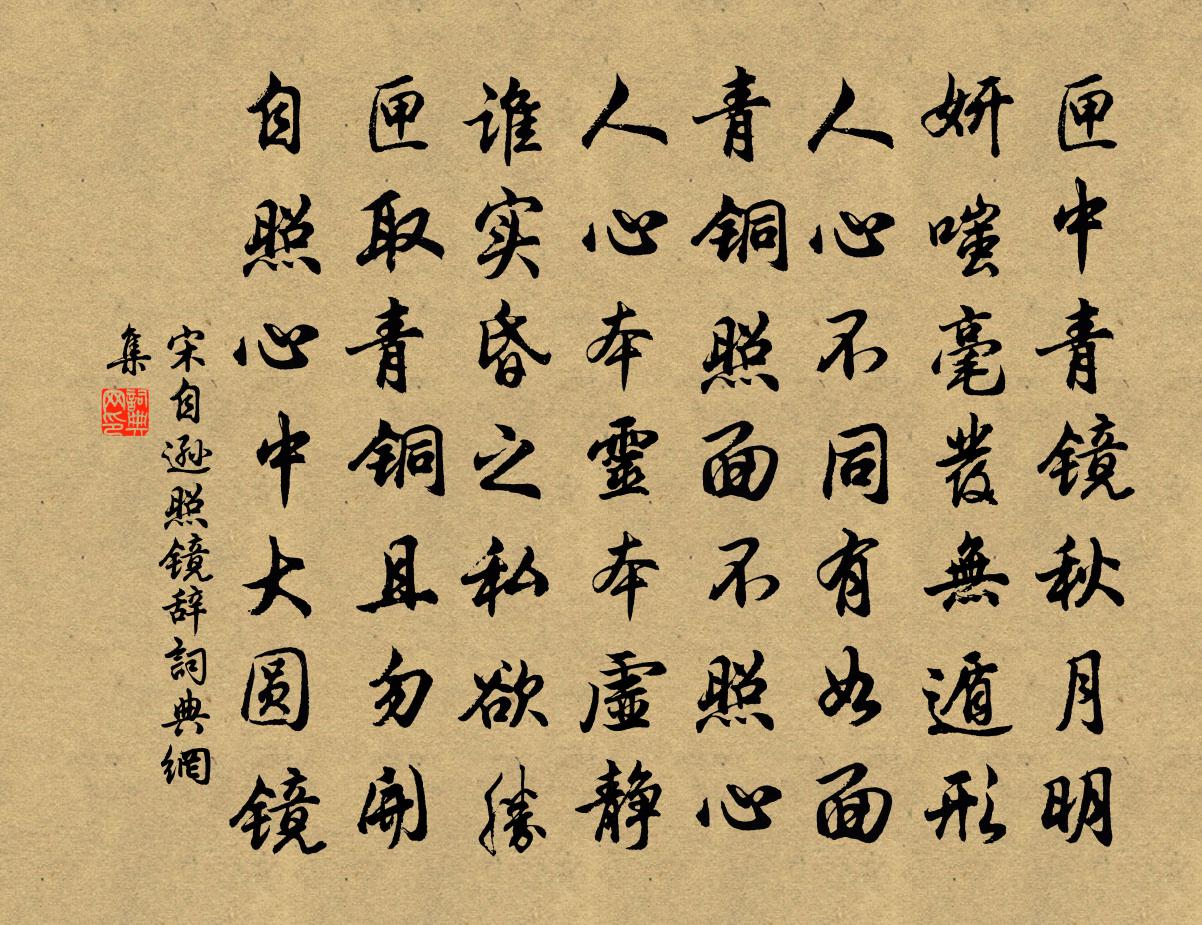 匣中青镜秋月明
妍嗤毫發無遁形
人心不同有如面
青铜照面不照心
人心本靈本虛静
谁实昏之私欲勝
匣取青铜且勿開
自照心中大圆镜
宋自逊照镜辞詞典網
集
詞典网印